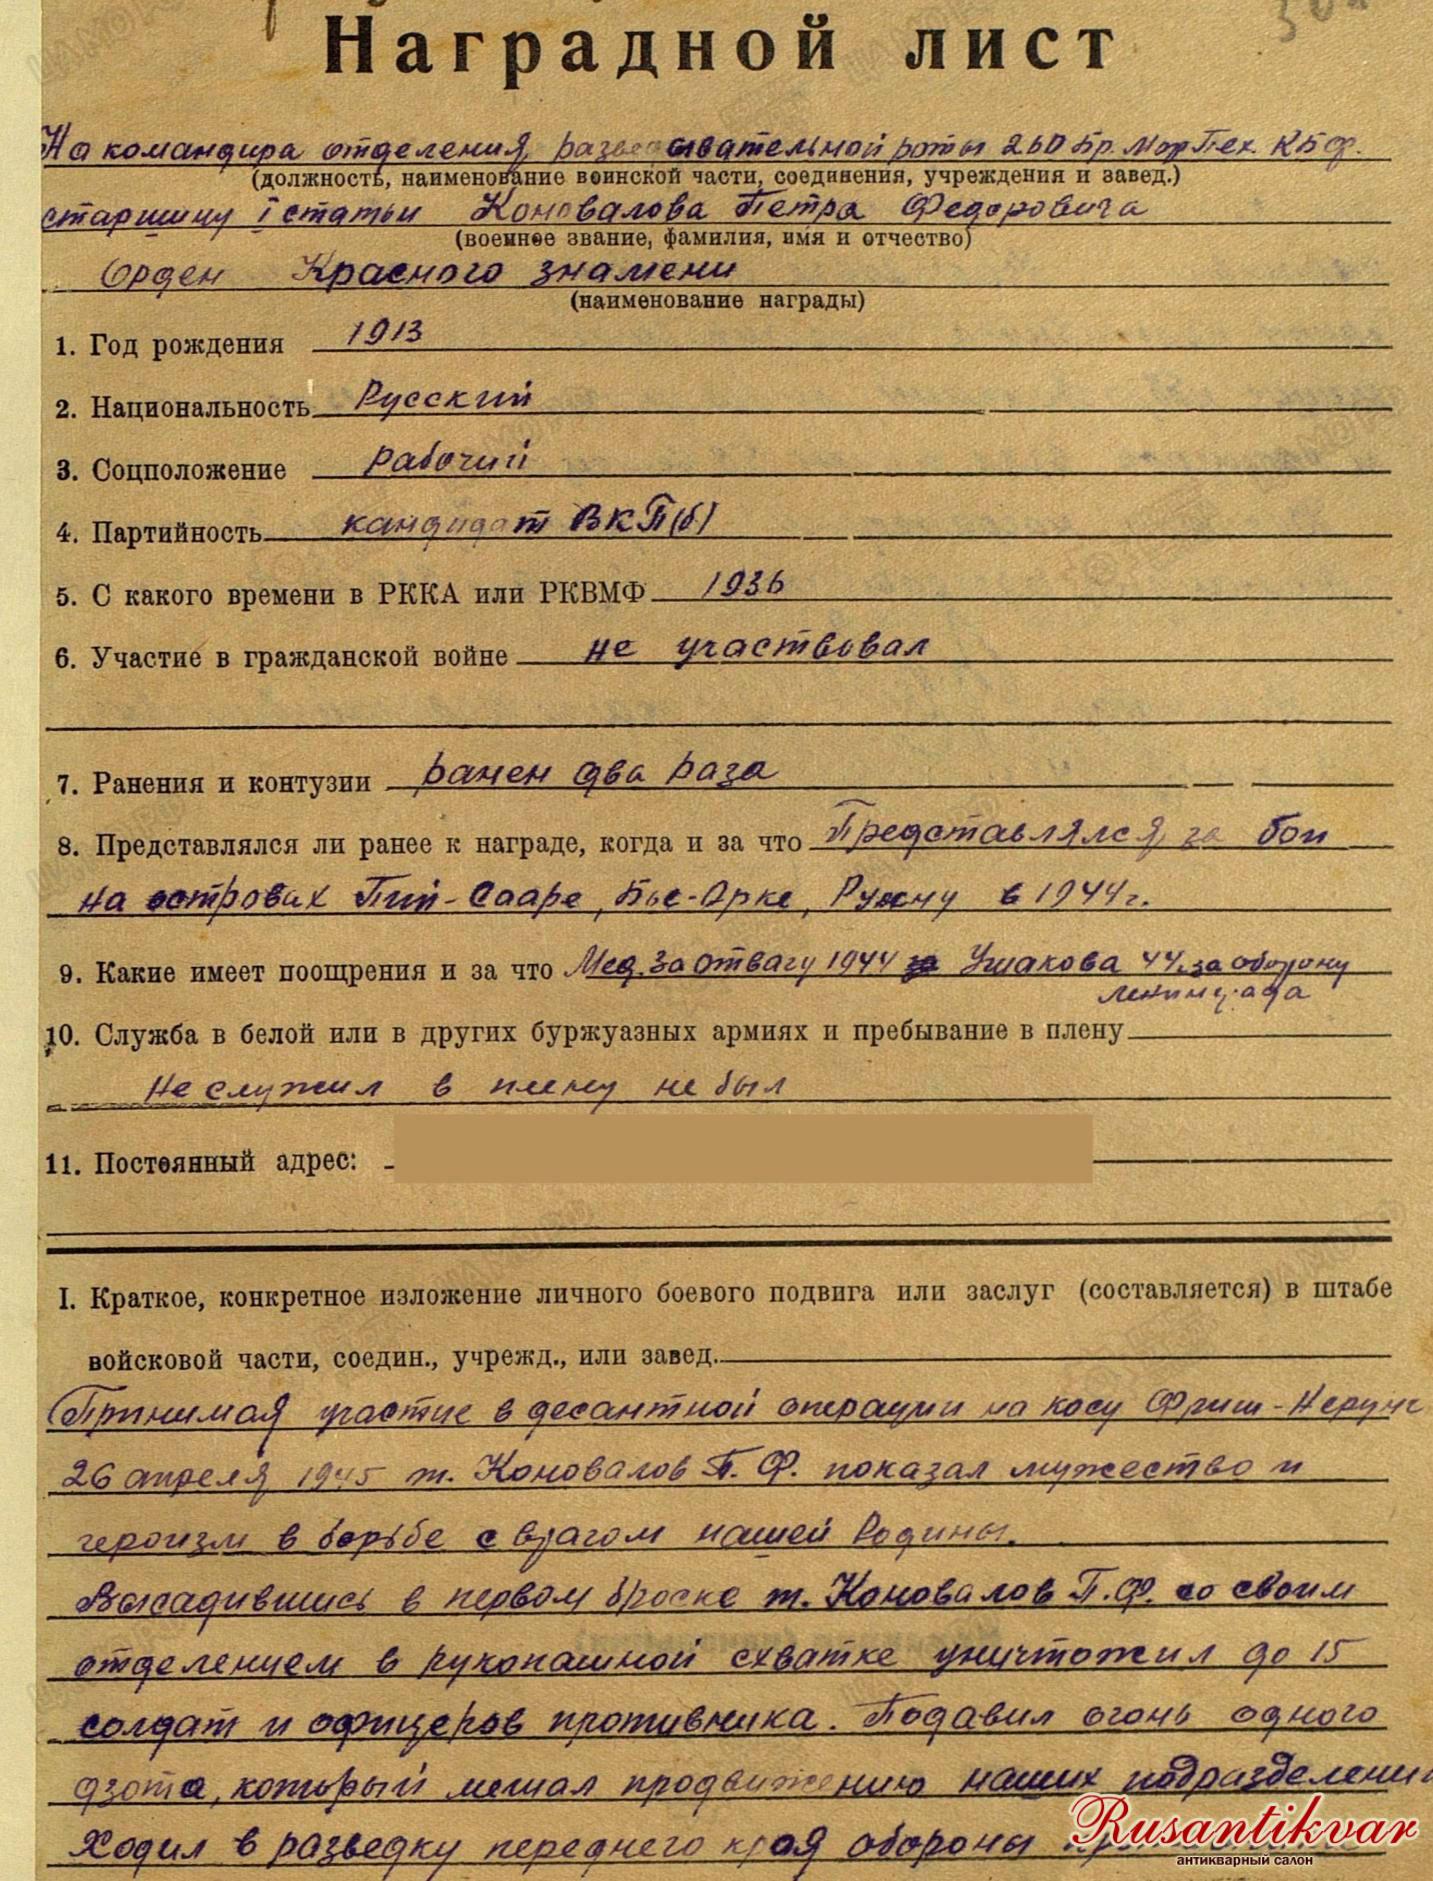 Наградной лист
На командира отделения разведывательной роты 260 Бр. МорПех. КБФ.
(должность, наименование воинской части, соединения, учреждения и завед.)
старшину I статьи Коновалова Петра Федоровича
(военное звание, фамилия, имя и отчество)
Орден Красного знамени
(наименование награды)
1. Год рождения 1913
2. Национальность Русский
3. Соцположение рабочий
4. Партийность кандидат ВКП(б)
5. С какого времени в РККА или РКВМФ 1936
6. Участие в гражданской войне не участвовал
7. Ранения и контузии ранен два раза
8. Представлялся ли ранее к награде, когда и за что Представлялся за бои
на островах Пий-Сааре, Бье-Орке, Рухну в 1944г.
9. Какие имеет поощрения и за что Мед. За отвагу 1944 Ушакова 44. за оборону
Ленинграда
10. Служба в белой или в других буржуазных армиях и пребывание в плену
Не служил в плену не был
11. Постоянный адрес:
I. Краткое, конкретное изложение личного боевого подвига или заслуг (составляется) в штабе
войсковой части, соедин., учрежд., или завед.
Принимая участие в десантной операции на косу Фриш-Нерунг
26 апреля 1945 т. Коновалов П. Ф. показал мужество и
героизм в борьбе с врагом нашей Родины.
Высадившись в первом броске т. Коновалов П.Ф. со своим
отделением в рукопашной схватке уничтожил до 15
солдат и офицеров противника. Подавил огонь одного
дзота, который мешал продвижению наших подразделений
Ходил в разведку переднего края обороны
Rusantikvar
антикварный салон